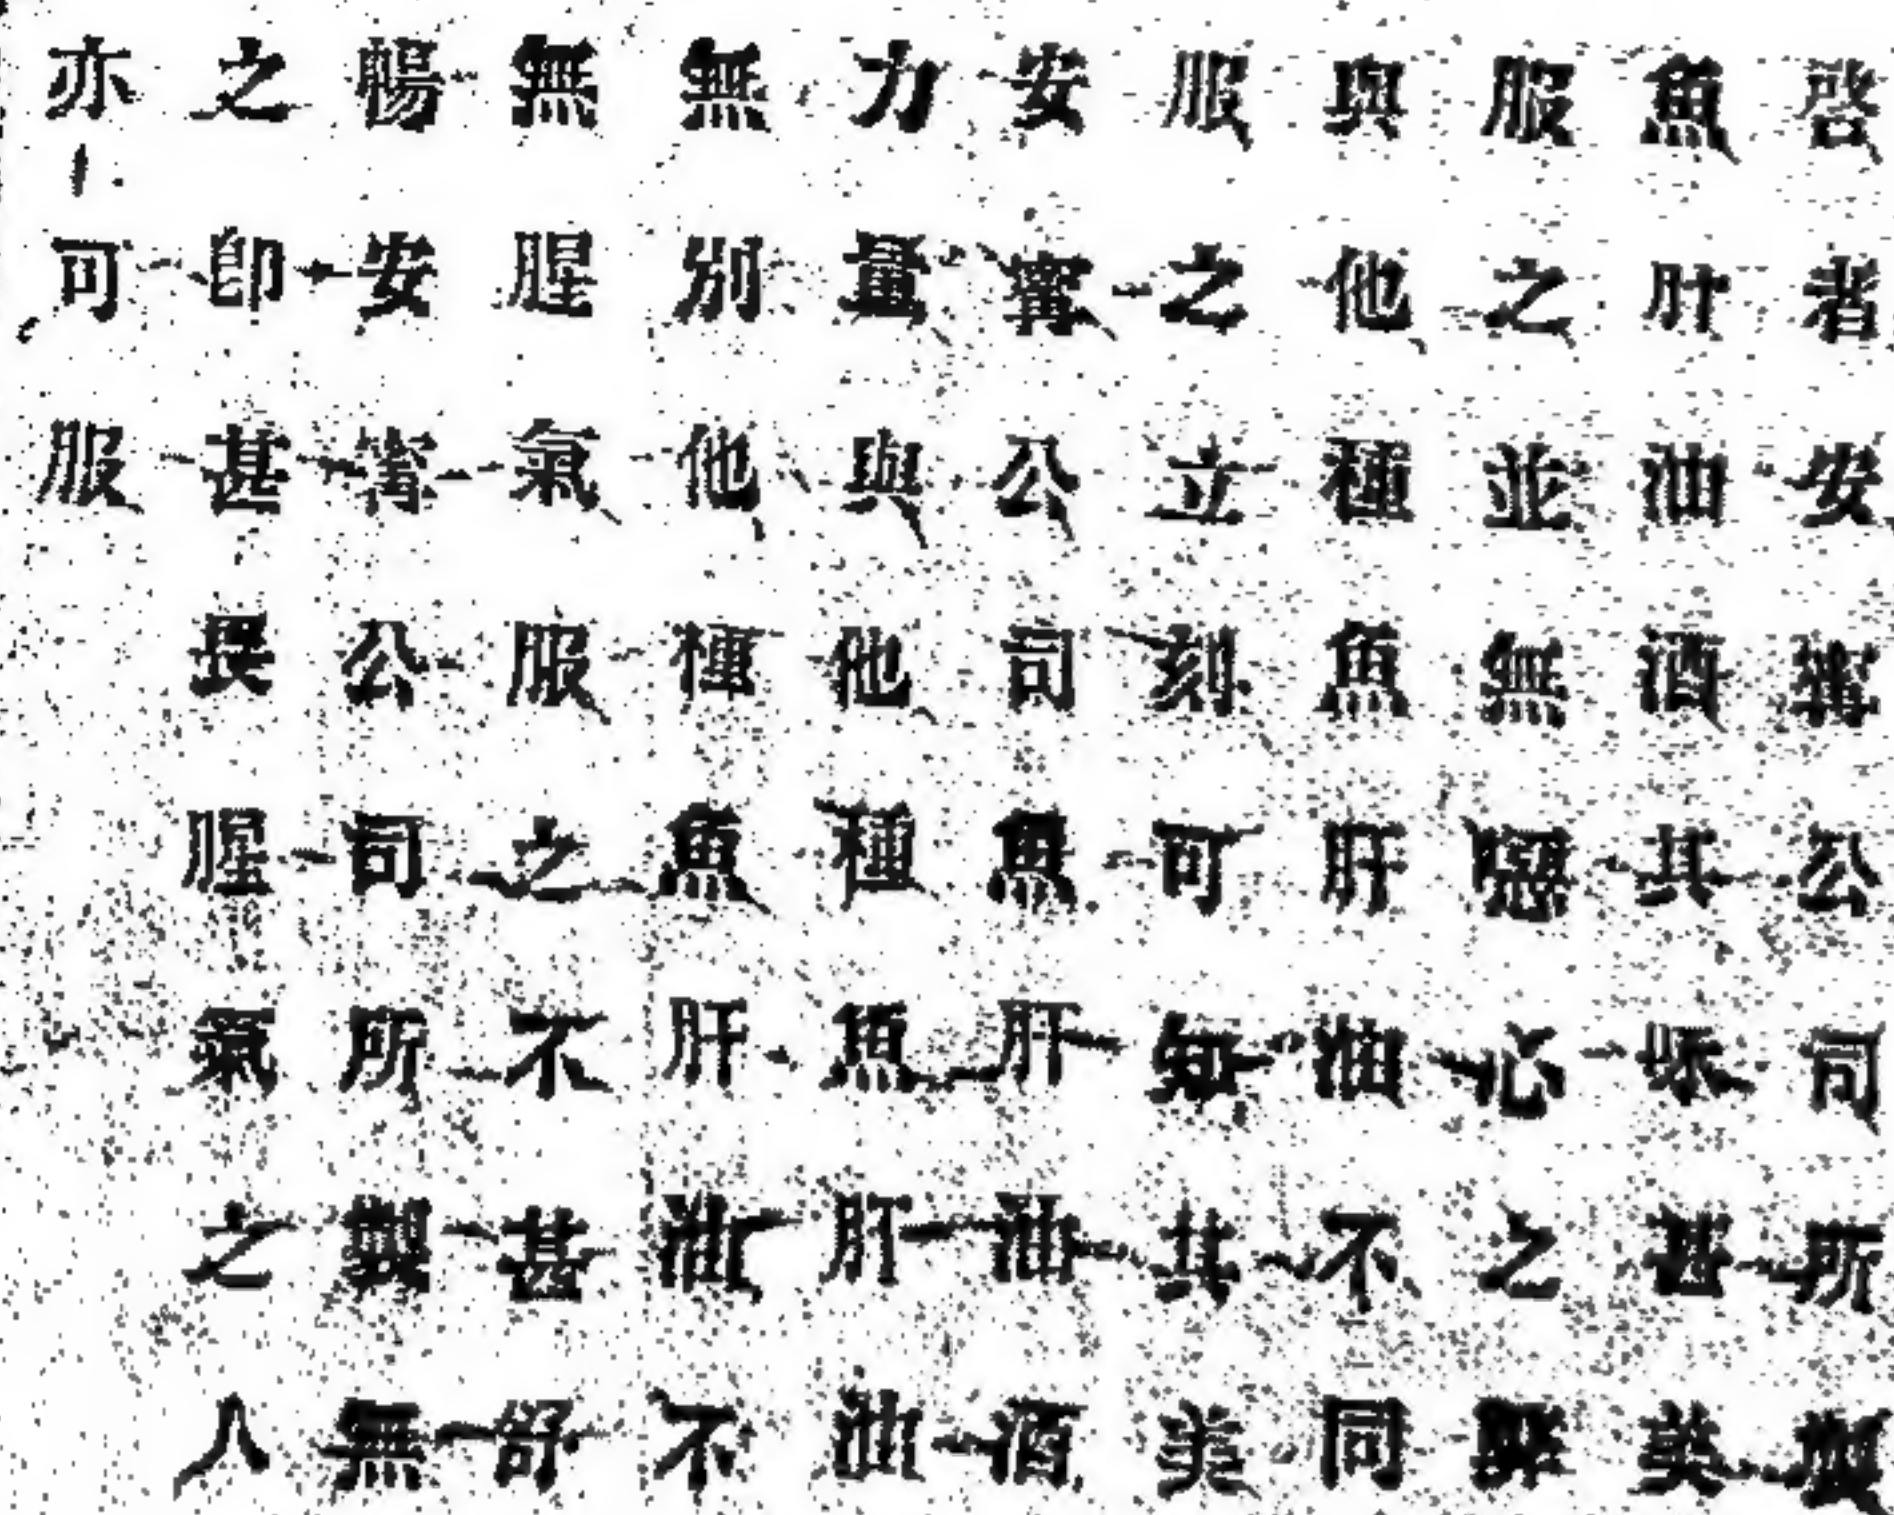 啓者安寗公司所製
魚肝油酒其味甚美
服之並無惡心之弊
與他種魚肝油不同
服之立刻可知其美
安寗公司魚肝油酒
力量與他種魚肝油
無別他種魚肝油不
無腥氣服之不甚舒
暢安寗公司所製無
之卽甚畏腥氣之人
亦可服